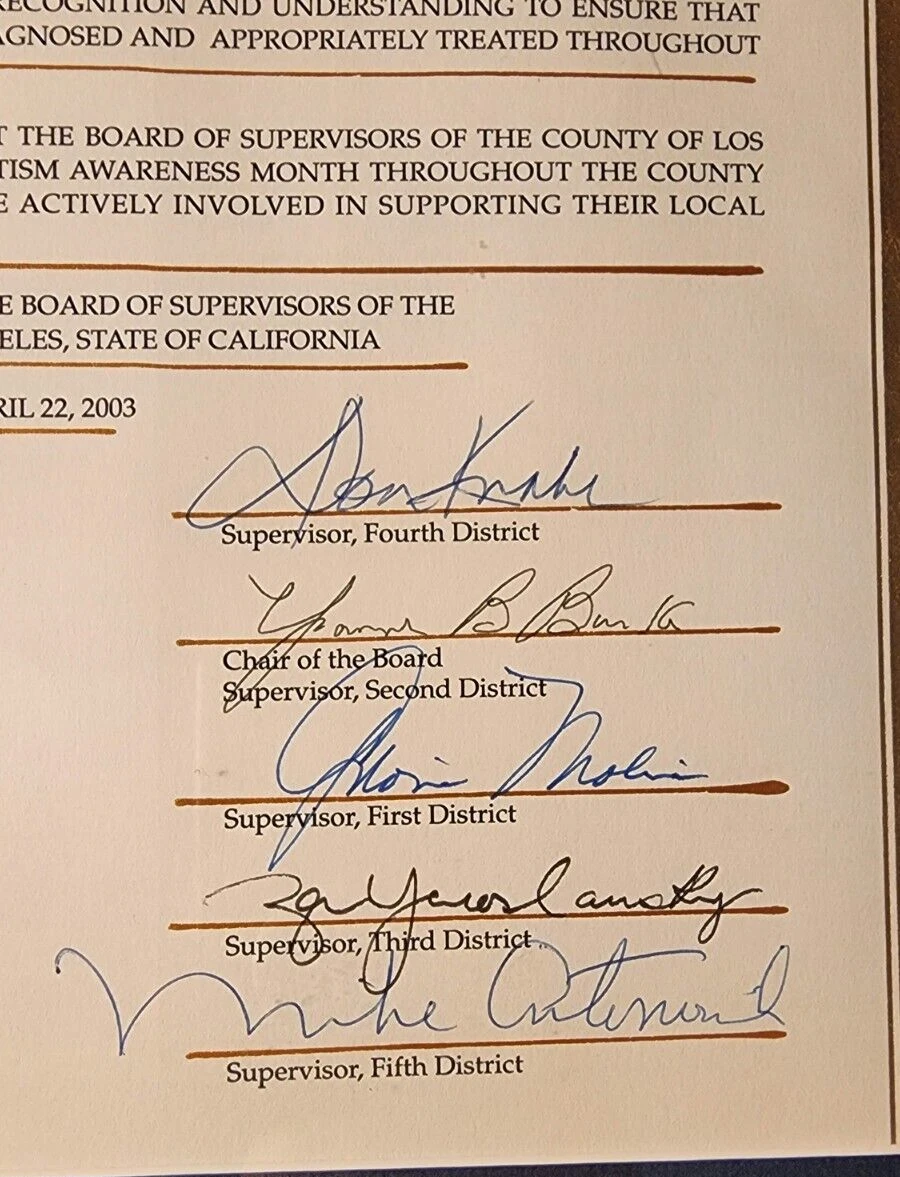 RECOGNITION AND UNDERSTANDING TO ENSURE THAT
AGNOSED AND APPROPRIATELY TREATED THROUGHOUT
T THE BOARD OF SUPERVISORS OF THE COUNTY OF LOS
TISM AWARENESS MONTH THROUGHOUT THE COUNTY
E ACTIVELY INVOLVED IN SUPPORTING THEIR LOCAL
E BOARD OF SUPERVISORS OF THE
ELES, STATE OF CALIFORNIA
RIL 22, 2003
Don Knabe
Supervisor, Fourth District
Yvonne B Burke
Chair of the Board
Supervisor, Second District
Gloria Molina
Supervisor, First District
Zev Yaroslavsky
Supervisor, Third District
Mike Antonovich
Supervisor, Fifth District